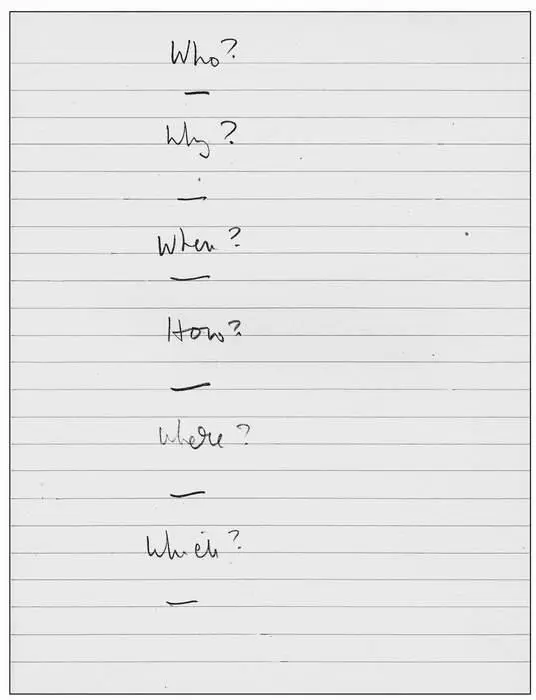 Who?
—
Why?
—
When?
—
How?
—
Where?
—
Which?
—